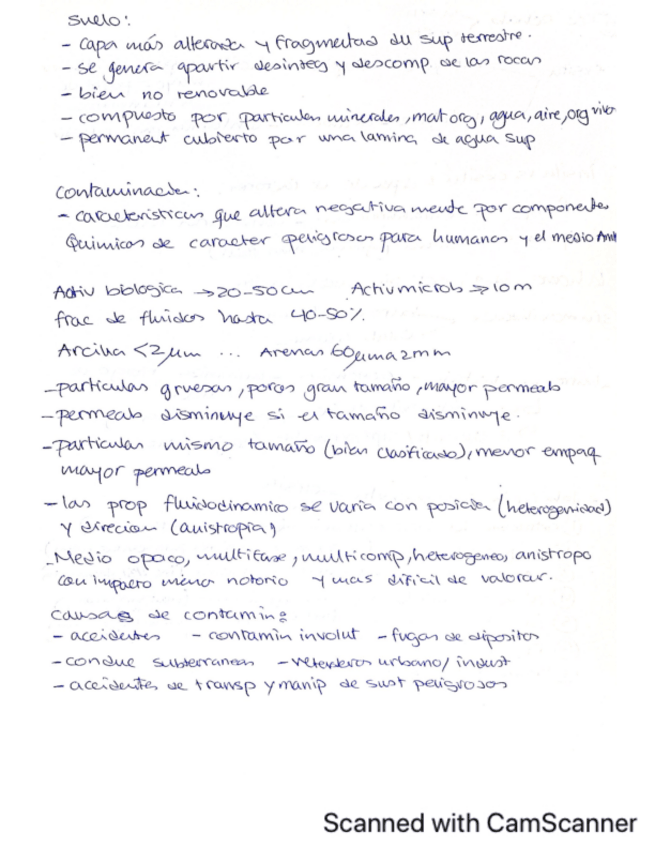 suelo:
- capa más alterada y fragmentad du sup terrestre.
- se genera apartir desinteg y descomp de las rocas
- bien no renovable
- compuesto por particulas minerales, mat org, agua, aire, org vivo
- permanent cubierto por una lamina de agua sup
contaminación:
- caracteristicas que altera negativa mente por componentes
Químicos de caracter peligrosos para humanos y el medio Amt
Activ biologica → 20-50cm Activ microb → 10m
frac de fluidos hasta 40-50%.
Arcilla <2μm ... Arenas 60μm a 2mm
- particulas gruesas, poros gran tamaño, mayor permeab
- permeab disminuye si el tamaño disminuye.
- particulas mismo tamaño (bien clasificado), menor empaq
mayor permeab
- las prop fluidodinamico se varia con posición (heterogenidad)
y direcion (anistropia)
- Medio opaco, multifase, multicomp, heterogeneo, anistropo
con impacto menor notorio y mas dificil de valorar.
causas de contamin:
- accidentes - contamin involut - fugas de dipositos
- conduc subterraneas - vertederos urbano/indust
- accidentes de transp y manip de sust peligrosos
Scanned with CamScanner